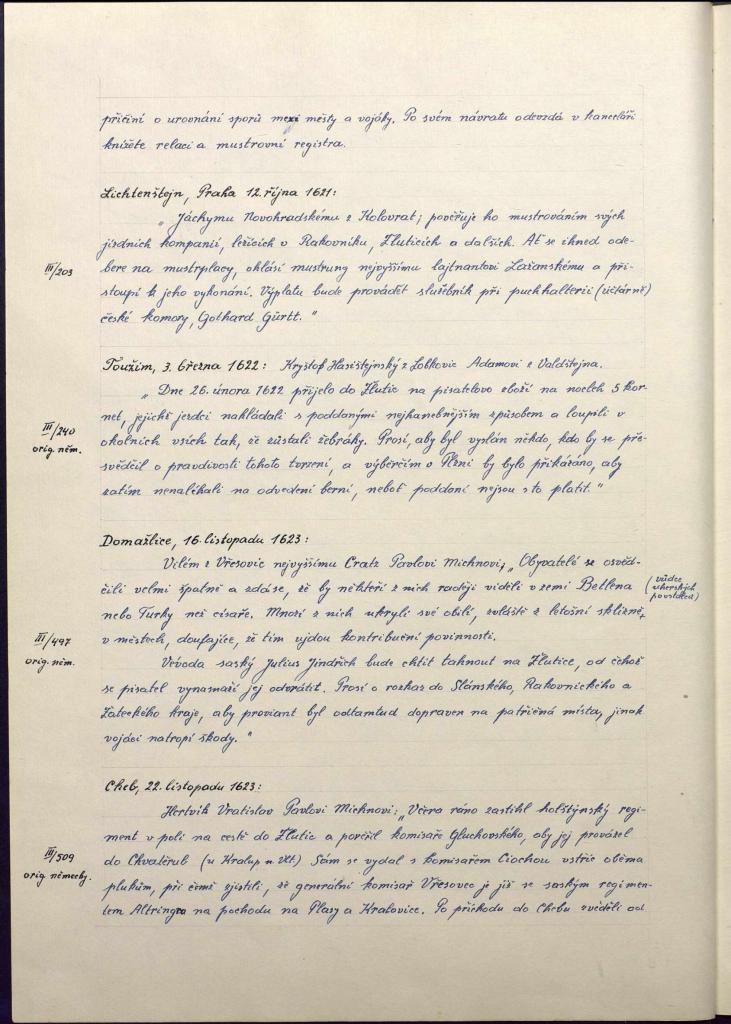 přičiní o urovnání sporů mezi městy a vojáky. Po svém návratu odevzdá v kanceláři
knížete relaci a mustrovní registra.
Lichtenštejn, Praha 12. října 1621:
„Jáchymu Novohradskému z Kolovrat; pověřuje ho mustrováním svých
jízdních kompanií, ležících v Rakovníku, Žluticích a dalších. Ať se ihned ode-
III/203
bere na mustrplacy, ohlásí mustrung nejvyššímu lajtnantovi Lažanskému a při-
stoupí k jeho vykonání. Výplatu bude provádět služebník při puchhalterii (účtárně)
české komory, Gothard Gürtt."
Toužim, 3. března 1622: Kryštof Hasištejnský z Lobkovic Adamovi z Valdštejna.
„Dne 26. února 1622 přijelo do Žlutic na pisatelovo zboží na nocleh 5 kor-
net, jejichž jezdci nakládali s poddanými nejhanebnějším způsobem a loupili v
III/240
okolních vsích tak, že zůstali žebráky. Prosí, aby byl vyslán někdo, kdo by se pře-
orig. něm.
svědčil o pravdivosti tohoto tvrzení, a výběrčím v Plzni by bylo přikázáno, aby
zatím nenaléhali na odvedení berní, neboť poddaní nejsou s to platit."
Domažlice, 16. listopadu 1623:
Vilém z Vřesovic nejvyššímu Cratz Pavlovi Michnovi, „Obyvatelé se osvěd-
čili velmi špatně a zdá se, že by někteří z nich raději viděli v zemi Betlena
(vůdce uherských povstalců)
nebo Turky než císaře. Mnozí z nich ukryli své obilí, zvláště z letošní sklizně,
III/497
v městech, doufajíce, že tím ujdou kontribuční povinnosti.
orig. něm.
Vévoda saský Julius Jindřich bude chtít táhnout na Žlutice, od čehož
se pisatel vynasnaží jej odvrátit. Prosí o rozkas do Slánského, Rakovnického a
Žateckého kraje, aby proviant byl odtamtud dopraven na patřičná místa, jinak
vojáci natropí škody."
Cheb, 22. listopadu 1623:
Hertvík Vratislav Pavlovi Michnovi: „Včera ráno zastihl holštýnský regi-
ment v poli na cestě do Žlutic a pověřil komisaře Gluchovského, aby jej provázel
III/509
do Chvatěrub (u Kralup n. Vlt) Sám se vydal s komisařem Ciochou vstříc oběma
orig. německy.
plukům, při čemž zjistili, že generální komisař Vřesovec je již se saským regimen-
tem Altringra na pochodu na Plasy a Kralovice. Po příchodu do Chebu zvěděli od